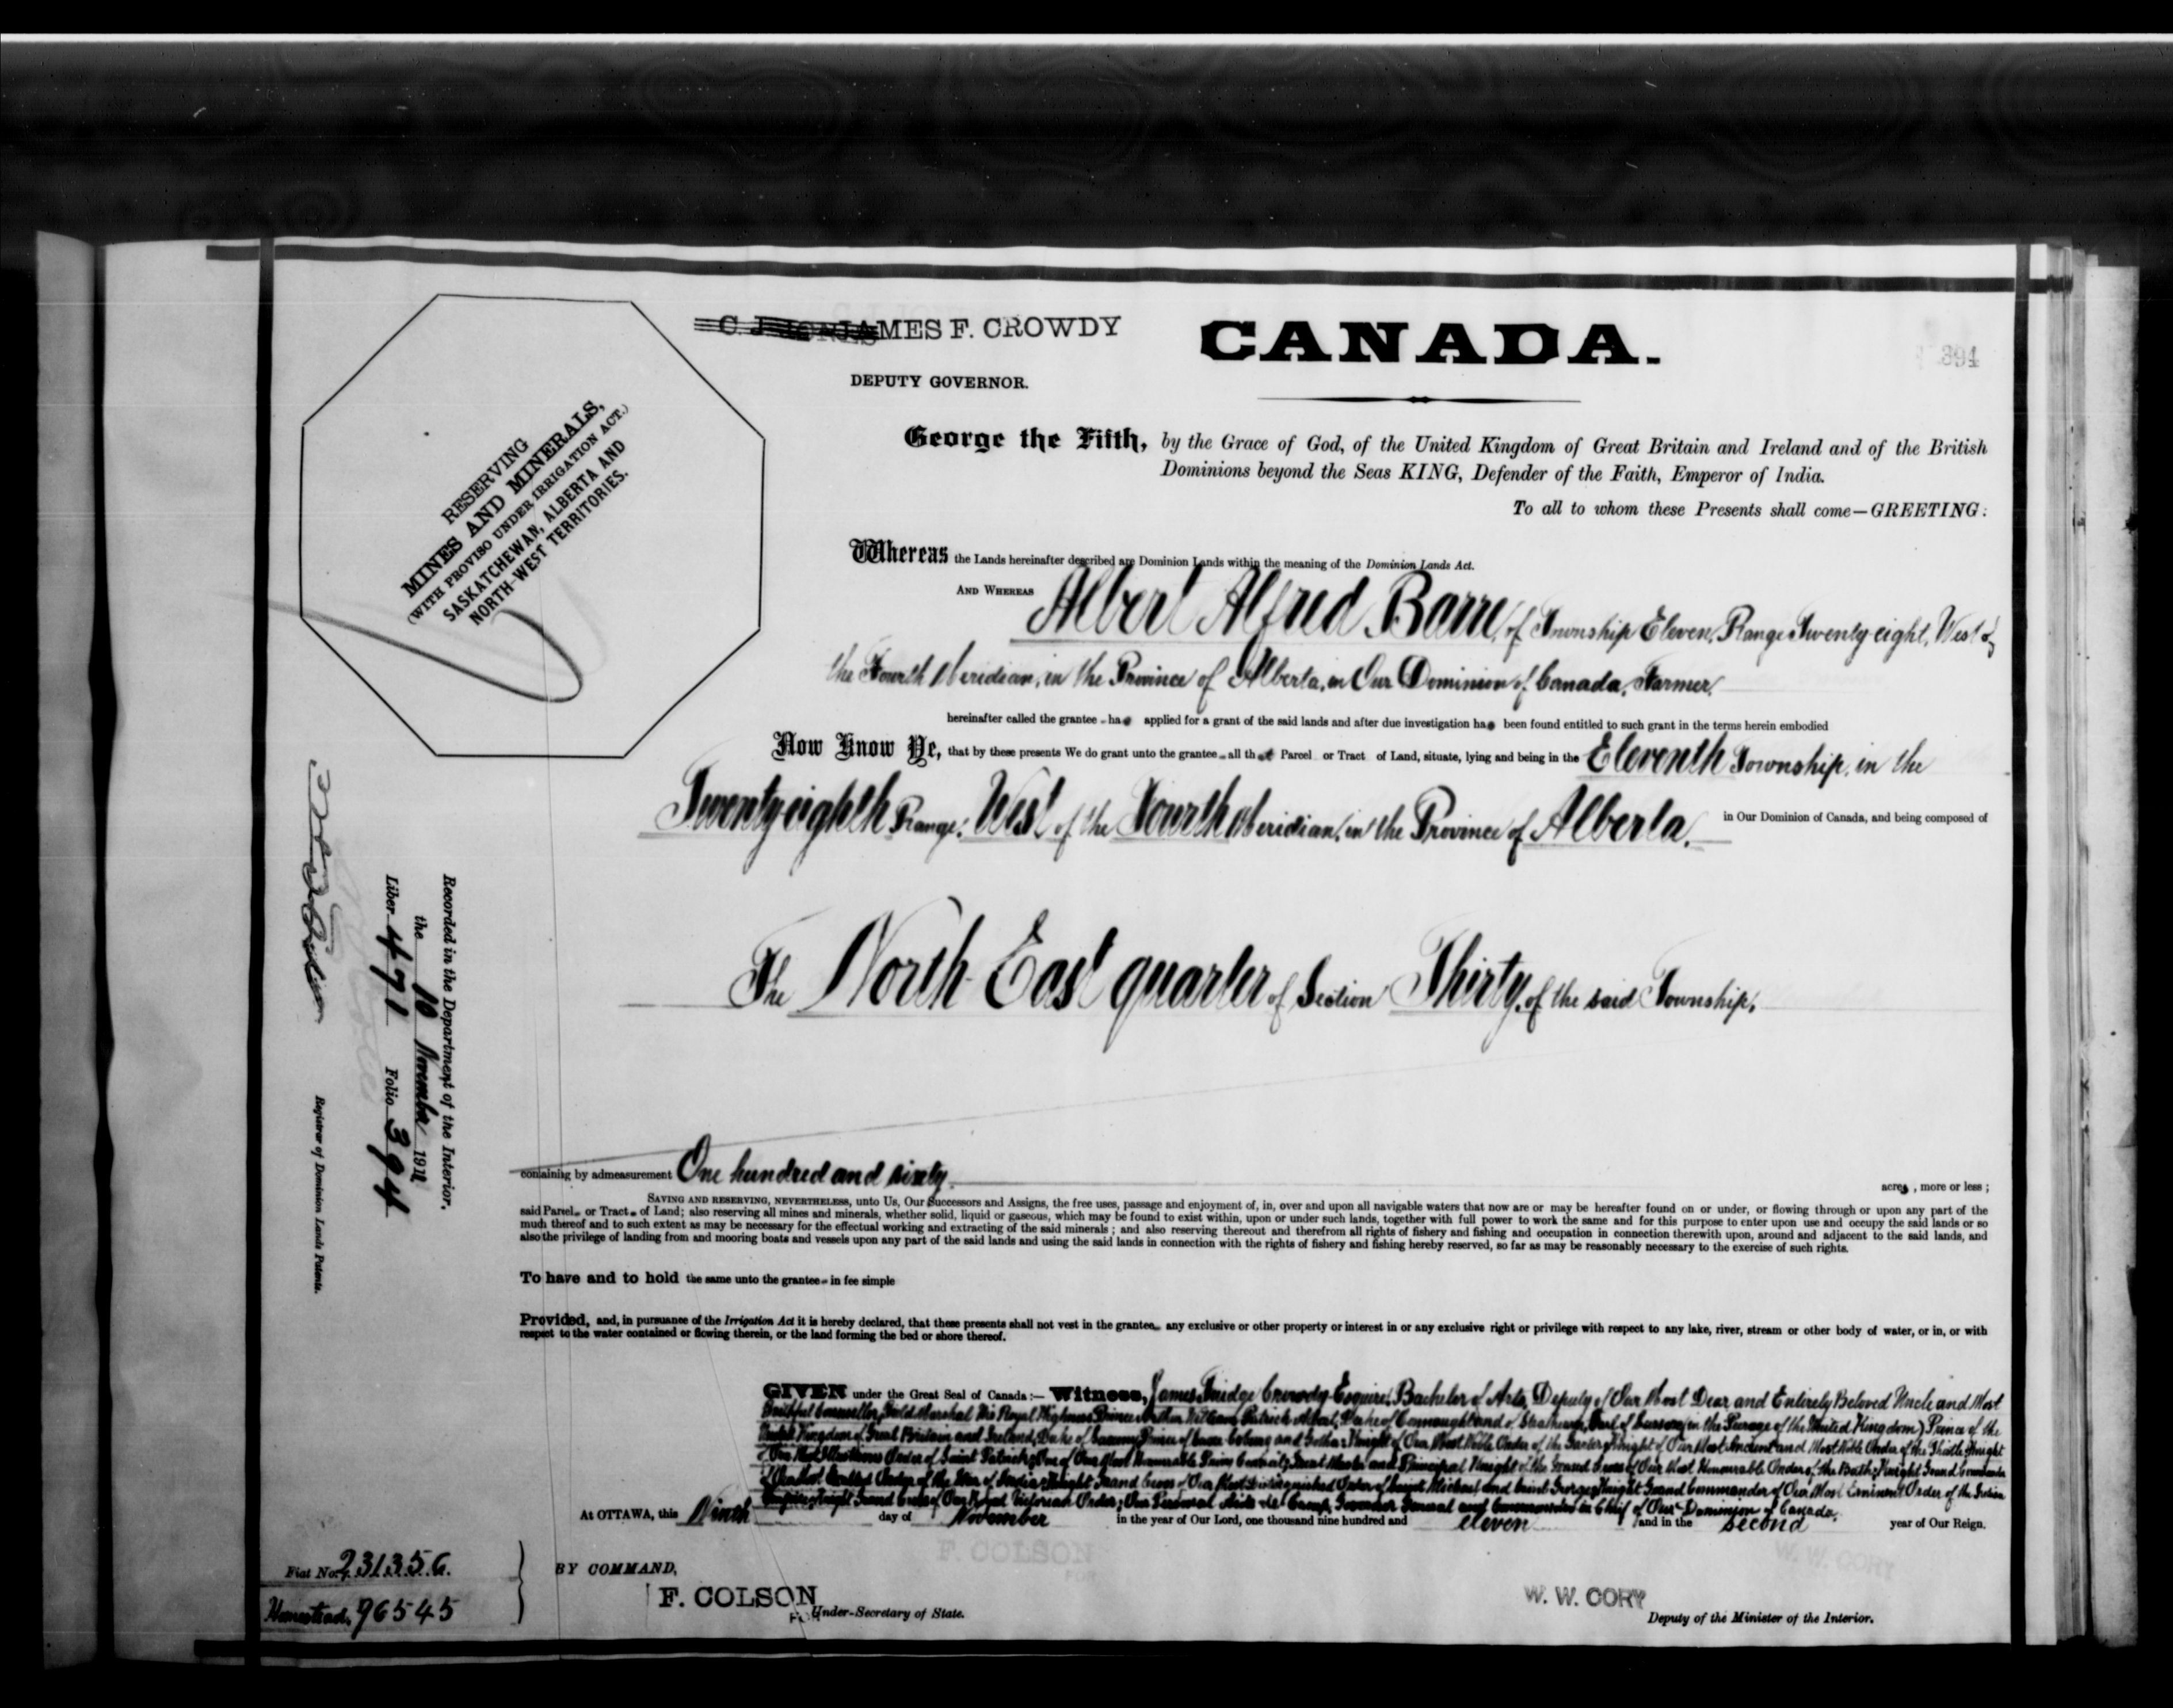 JAMES F. CROWDY
DEPUTY GOVERNOR.
CANADA.
394
RESERVING
MINES AND MINERALS,
(WITH PROVISO UNDER IRRIGATION ACT.)
SASKATCHEWAN, ALBERTA AND
NORTH-WEST TERRITORIES.
George the Fifth, by the Grace of God, of the United Kingdom of Great Britain and Ireland and of the British
Dominions beyond the Seas KING, Defender of the Faith, Emperor of India.
To all to whom these Presents shall come—GREETING:
Whereas the Lands hereinafter described are Dominion Lands within the meaning of the Dominion Lands Act.
AND WHEREAS Albert Alfred Barre, of Township Eleven, Range Twenty-eight, West of
the Fourth Meridian, in the Province of Alberta, in Our Dominion of Canada, Farmer,
hereinafter called the grantee has applied for a grant of the said lands and after due investigation has been found entitled to such grant in the terms herein embodied
Now Know Ye, that by these presents We do grant unto the grantee all that Parcel or Tract of Land, situate, lying and being in the Eleventh Township, in the
Twenty-eighth Range, West of the Fourth Meridian, in the Province of Alberta, in Our Dominion of Canada, and being composed of
The North East quarter of Section Thirty, of the said Township,
containing by admeasurement One hundred and sixty acres, more or less;
SAVING AND RESERVING, NEVERTHELESS, unto Us, Our Successors and Assigns, the free uses, passage and enjoyment of, in, over and upon all navigable waters that now are or may be hereafter found on or under, or flowing through or upon any part of the
said Parcel or Tract of Land; also reserving all mines and minerals, whether solid, liquid or gaseous, which may be found to exist within, upon or under such lands, together with full power to work the same and for this purpose to enter upon use and occupy the said lands or so
much thereof and to such extent as may be necessary for the effectual working and extracting of the said minerals; and also reserving thereout and therefrom all rights of fishery and fishing and occupation in connection therewith upon, around and adjacent to the said lands, and
also the privilege of landing from and mooring boats and vessels upon any part of the said lands and using the said lands in connection with the rights of fishery and fishing hereby reserved, so far as may be reasonably necessary to the exercise of such rights.
To have and to hold the same unto the grantee in fee simple
Provided, and, in pursuance of the Irrigation Act it is hereby declared, that these presents shall not vest in the grantee any exclusive or other property or interest in or any exclusive right or privilege with respect to any lake, river, stream or other body of water, or in, or with
respect to the water contained or flowing therein, or the land forming the bed or shore thereof.
GIVEN under the Great Seal of Canada:— Witness, James Crowdy Esquire, Bachelor of Arts, Deputy of Our Most Dear and Entirely Beloved Uncle and Most
Faithful Counsellor, Field Marshal His Royal Highness Prince Arthur William Patrick Albert, Duke of Connaught and of Strathearn, Earl of Sussex (in the Peerage of the United Kingdom) Prince of the
United Kingdom of Great Britain and Ireland, Duke of Saxony, Prince of Saxe Coburg and Gotha; Knight of Our Most Noble Order of the Garter; Knight of Our Most Ancient and Most Noble Order of the Thistle; Knight
of Our Most Illustrious Order of Saint Patrick; One of Our Most Honourable Privy Council; Great Master and Principal Knight of the Grand Cross of Our Most Honourable Order of the Bath; Knight Grand Commander
of Our Most Exalted Order of the Star of India; Knight Grand Cross of Our Most Distinguished Order of Saint Michael and Saint George; Knight Grand Commander of Our Most Eminent Order of the Indian
Empire; Knight Grand Cross of Our Royal Victorian Order; Our Personal Aide de Camp; Governor General and Commander in Chief of Our Dominion of Canada.
At OTTAWA, this Ninth day of November in the year of Our Lord, one thousand nine hundred and eleven and in the second year of Our Reign.
BY COMMAND,
F. COLSON
FOR Under-Secretary of State.
W. W. CORY
Deputy of the Minister of the Interior.
Fiat No. 231356.
Homestead, 96545
Recorded in the Department of the Interior.
the 10 November 1911
Liber 471 Folio 394
Registrar of Dominion Lands Patents.